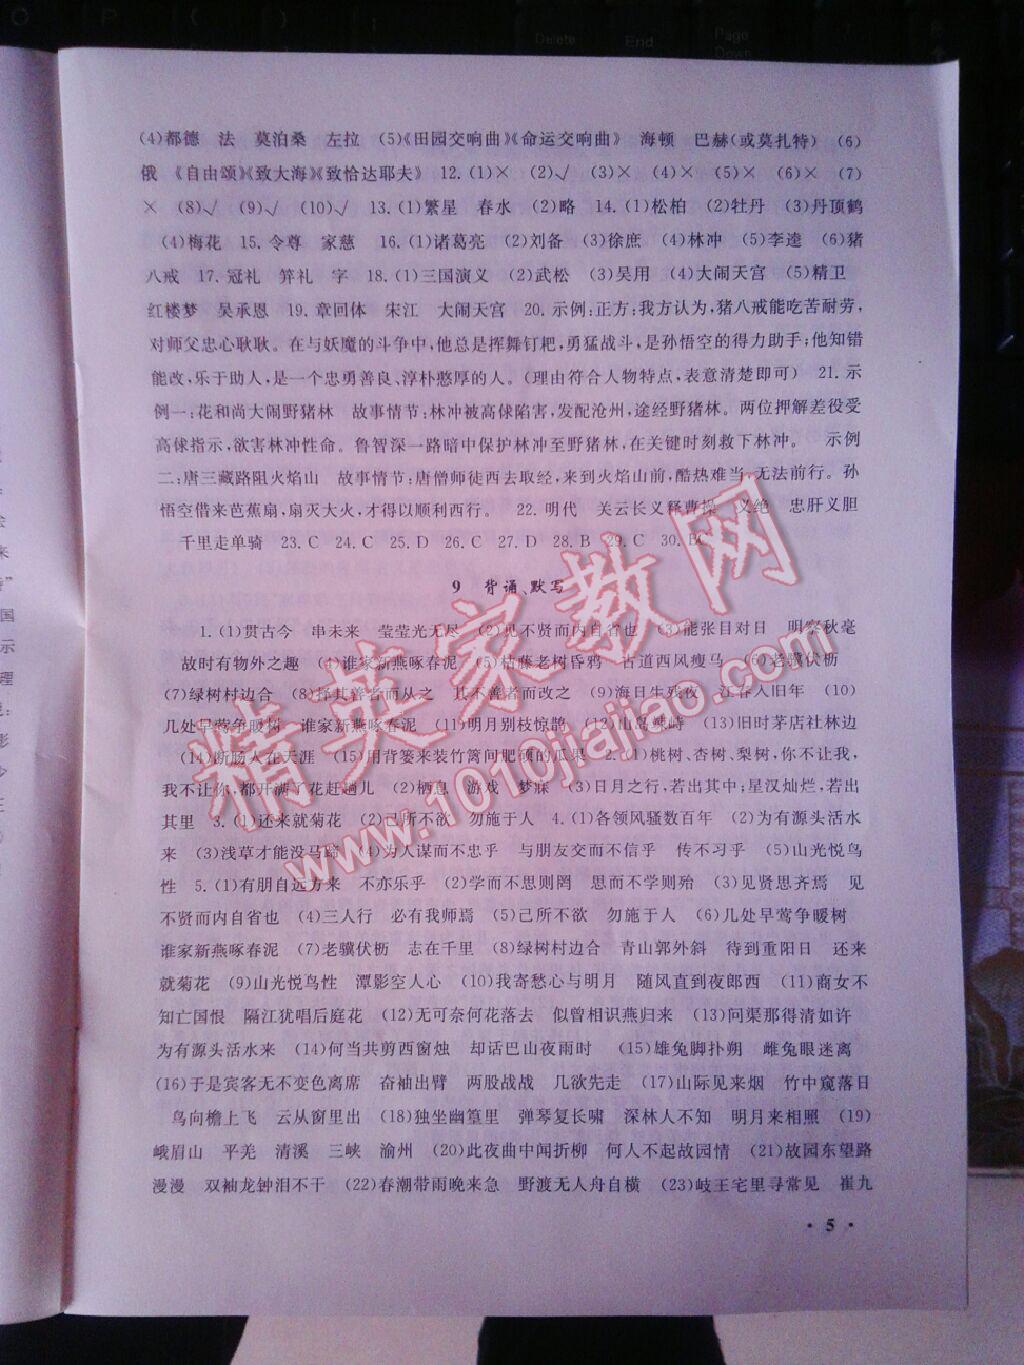 Delete End Page Down
(4)都德 法 莫泊桑 左拉 (5)《田园交响曲》《命运交响曲》 海顿 巴赫(或莫扎特) (6)
俄 《自由颂》《致大海》《致恰达耶夫》 12.(1)× (2)√ (3)× (4)× (5)× (6)× (7)
× (8)√ (9)√ (10)√ 13.(1)繁星 春水 (2)略 14.(1)松柏 (2)牡丹 (3)丹顶鹤
(4)梅花 15. 令尊 家慈 16.(1)诸葛亮 (2)刘备 (3)徐庶 (4)林冲 (5)李逵 (6)猪
八戒 17. 冠礼 笄礼 字 18.(1)三国演义 (2)武松 (3)吴用 (4)大闹天宫 (5)精卫
红楼梦 吴承恩 19. 章回体 宋江 大闹天宫 20. 示例:正方:我方认为,猪八戒能吃苦耐劳,
对师父忠心耿耿。在与妖魔的斗争中,他总是挥舞钉耙,勇猛战斗,是孙悟空的得力助手;他知错
能改,乐于助人,是一个忠勇善良、淳朴憨厚的人。(理由符合人物特点,表意清楚即可) 21. 示
例一:花和尚大闹野猪林 故事情节:林冲被高俅陷害,发配沧州,途经野猪林。两位押解差役受
高俅指示,欲害林冲性命。鲁智深一路暗中保护林冲至野猪林,在关键时刻救下林冲。 示例
二:唐三藏路阻火焰山 故事情节:唐僧师徒西去取经,来到火焰山前,酷热难当,无法前行。孙
悟空借来芭蕉扇,扇灭大火,才得以顺利西行。 22. 明代 关云长义释曹操 义绝 忠肝义胆
千里走单骑 23. C 24. C 25. D 26. C 27. D 28. B 29. C 30. BC
9 背诵、默写
1.(1)贯古今 串未来 莹莹光无尽 (2)见不贤而内自省也 (3)能张目对日 明察秋毫
故时有物外之趣 (4)谁家新燕啄春泥 (5)枯藤老树昏鸦 古道西风瘦马 (6)老骥伏枥
(7)绿树村边合 (8)择其善者而从之 其不善者而改之 (9)海日生残夜 江春入旧年 (10)
几处早莺争暖树 谁家新燕啄春泥 (11)明月别枝惊鹊 (12)山岛竦峙 (13)旧时茅店社林边
(14)断肠人在天涯 (15)用背篓来装竹篱间肥硕的瓜果 2.(1)桃树、杏树、梨树,你不让我,
我不让你,都开满了花赶趟儿 (2)栖息 游戏 梦寐 (3)日月之行,若出其中;星汉灿烂,若出
其里 3.(1)还来就菊花 (2)己所不欲 勿施于人 4.(1)各领风骚数百年 (2)为有源头活水
来 (3)浅草才能没马蹄 (4)为人谋而不忠乎 与朋友交而不信乎 传不习乎 (5)山光悦鸟
性 5.(1)有朋自远方来 不亦乐乎 (2)学而不思则罔 思而不学则殆 (3)见贤思齐焉 见
不贤而内自省也 (4)三人行 必有我师焉 (5)己所不欲 勿施于人 (6)几处早莺争暖树
谁家新燕啄春泥 (7)老骥伏枥 志在千里 (8)绿树村边合 青山郭外斜 待到重阳日 还来
就菊花 (9)山光悦鸟性 潭影空人心 (10)我寄愁心与明月 随风直到夜郎西 (11)商女不
知亡国恨 隔江犹唱后庭花 (12)无可奈何花落去 似曾相识燕归来 (13)问渠那得清如许
为有源头活水来 (14)何当共剪西窗烛 却话巴山夜雨时 (15)雄兔脚扑朔 雌兔眼迷离
(16)于是宾客无不变色离席 奋袖出臂 两股战战 几欲先走 (17)山际见来烟 竹中窥落日
鸟向檐上飞 云从窗里出 (18)独坐幽篁里 弹琴复长啸 深林人不知 明月来相照 (19)
峨眉山 平羌 清溪 三峡 渝州 (20)此夜曲中闻折柳 何人不起故园情 (21)故园东望路
漫漫 双袖龙钟泪不干 (22)春潮带雨晚来急 野渡无人舟自横 (23)岐王宅里寻常见 崔九
· 5 ·
精英家教网
www.1010jiajiao.com